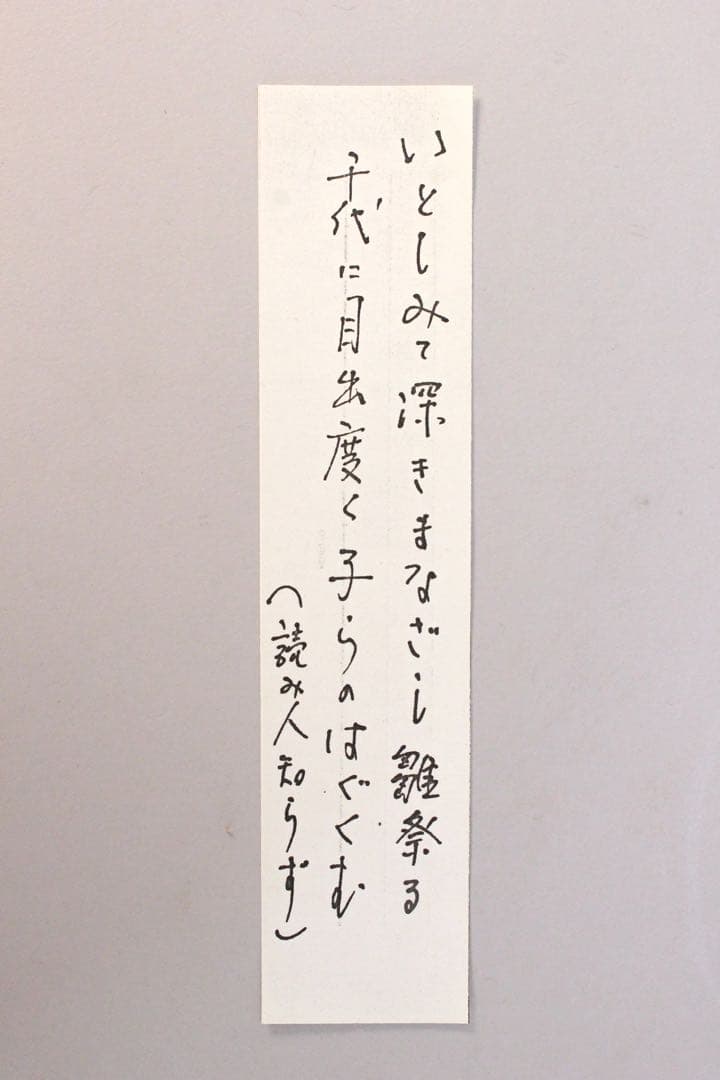 いとしみて深きまなざし雛祭る
千代に目出度く子らのはぐくむ
(読み人知らず)